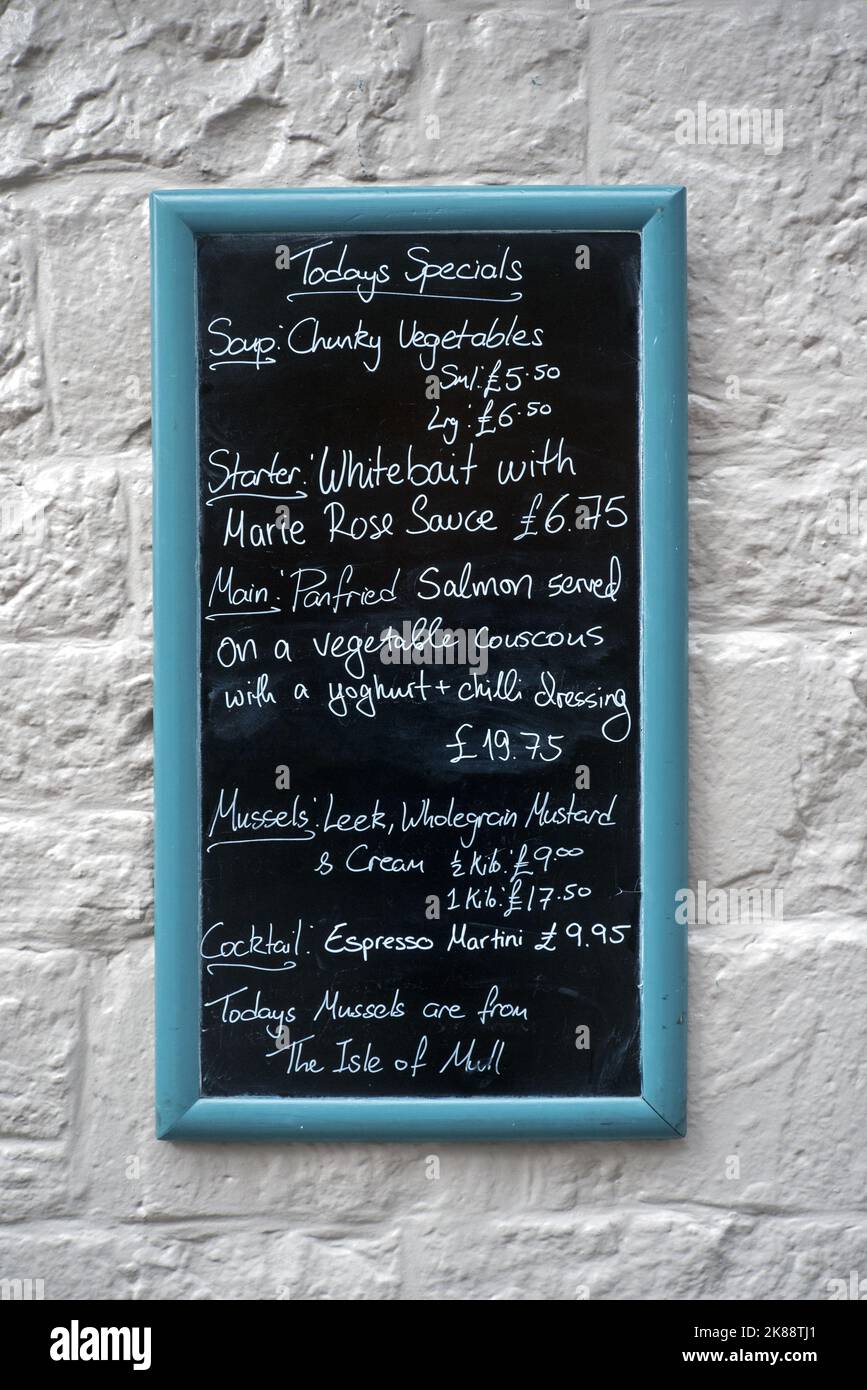 Todays Specials
Soup: Chunky Vegetables
Sml: £5.50
Lrg: £6.50
Starter: Whitebait with
Marie Rose Sauce £6.75
Main: Panfried Salmon served
on a vegetable couscous
with a yoghurt + chilli dressing
£19.75
Mussels: Leek, Wholegrain Mustard
& Cream ½ Kilo: £9.00
1 Kilo: £17.50
Cocktail: Espresso Martini £9.95
Todays Mussels are from
The Isle of Mull
a
alamy
Image ID: 2K88TJ1
www.alamy.com